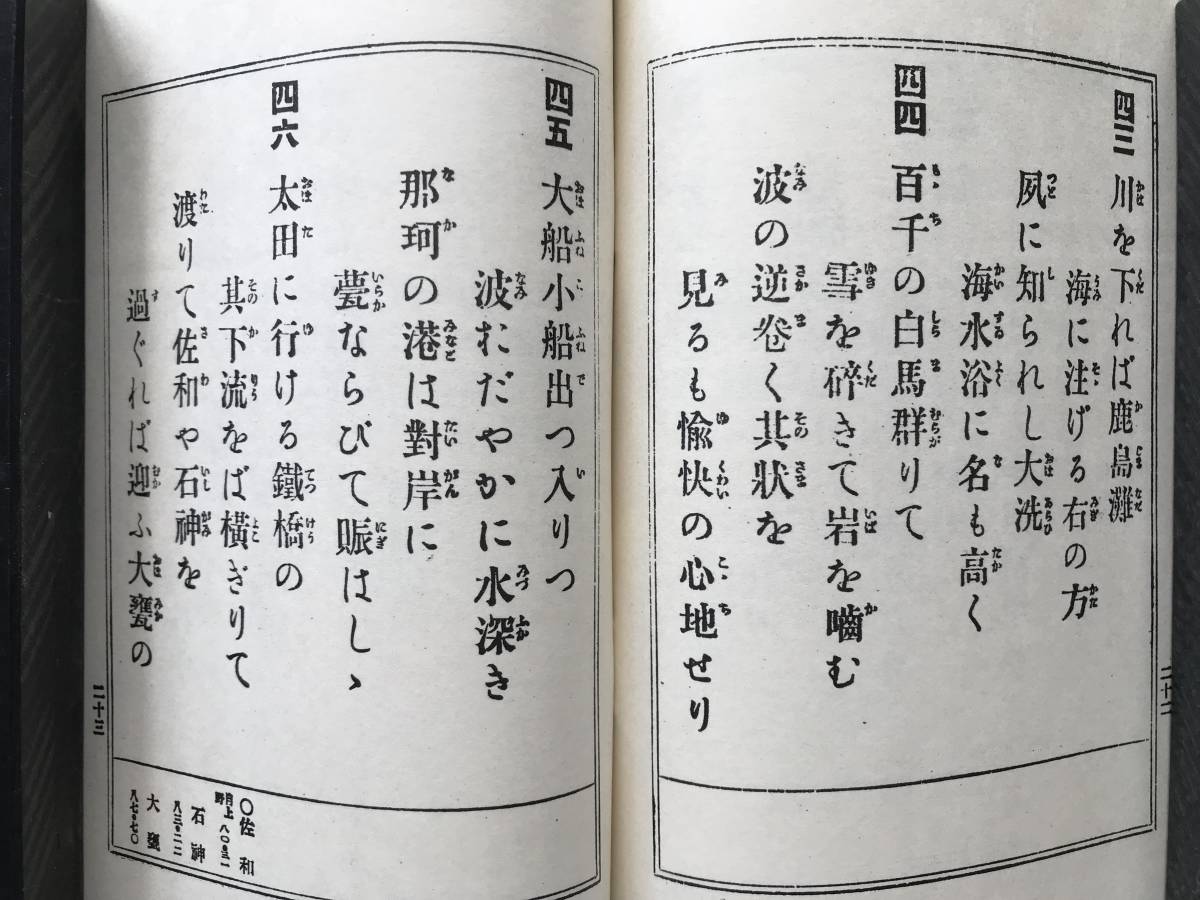 四三 川を下れば鹿島灘
海に注げる右の方
夙に知られし大洗
海水浴に名も高く
四四 百千の白馬群りて
雪を碎きて岩を嚙む
波の逆卷く其狀を
見るも愉快の心地せり
二十二
四五 大船小船出つ入りつ
波おだやかに水深き
那珂の港は對岸に
甍ならびて賑はしゝ
四六 太田に行ける鐵橋の
其下流をば橫ぎりて
渡りて佐和や石神を
過ぐれば迎ふ大甕の
二十三
〇佐和
上野 八〇・三一
石神
八三・二二
大甕
八七・七〇